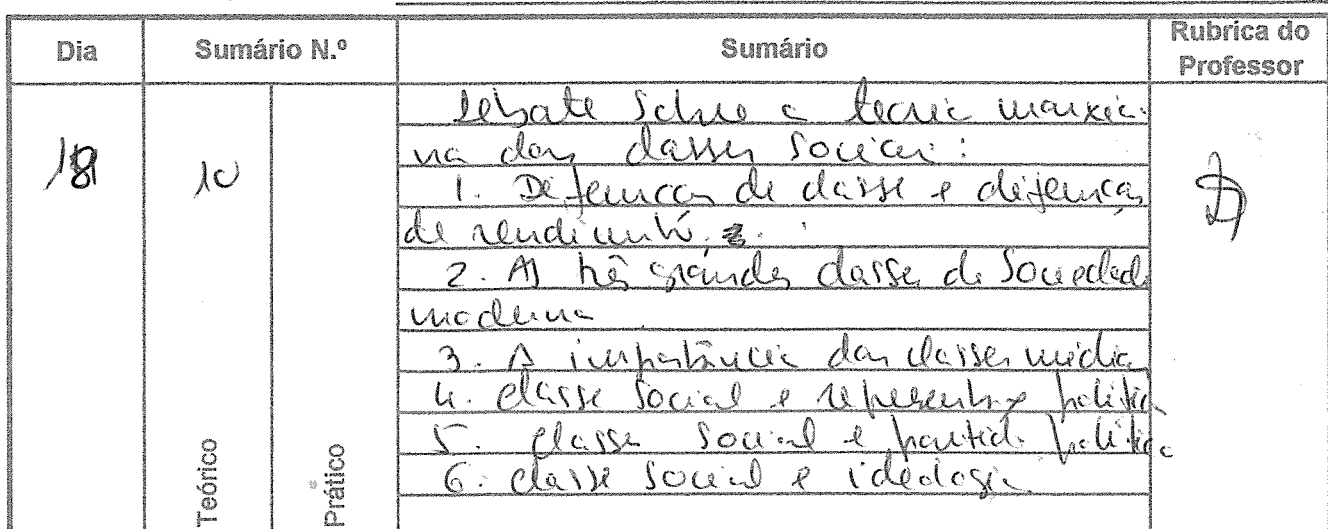 Dia Sumário N.º Sumário Rubrica do Professor
18 10
Debate sobre a teoria marxia-
na das classes sociais:
1. Diferenças de classe e diferenças
de rendimento.
2. As três grandes classes da Sociedade
moderna
3. A importância das classes médias
4. Classe Social e representação política
5. Classe social e partido político
6. Classe social e ideologia
Teórico
Prático